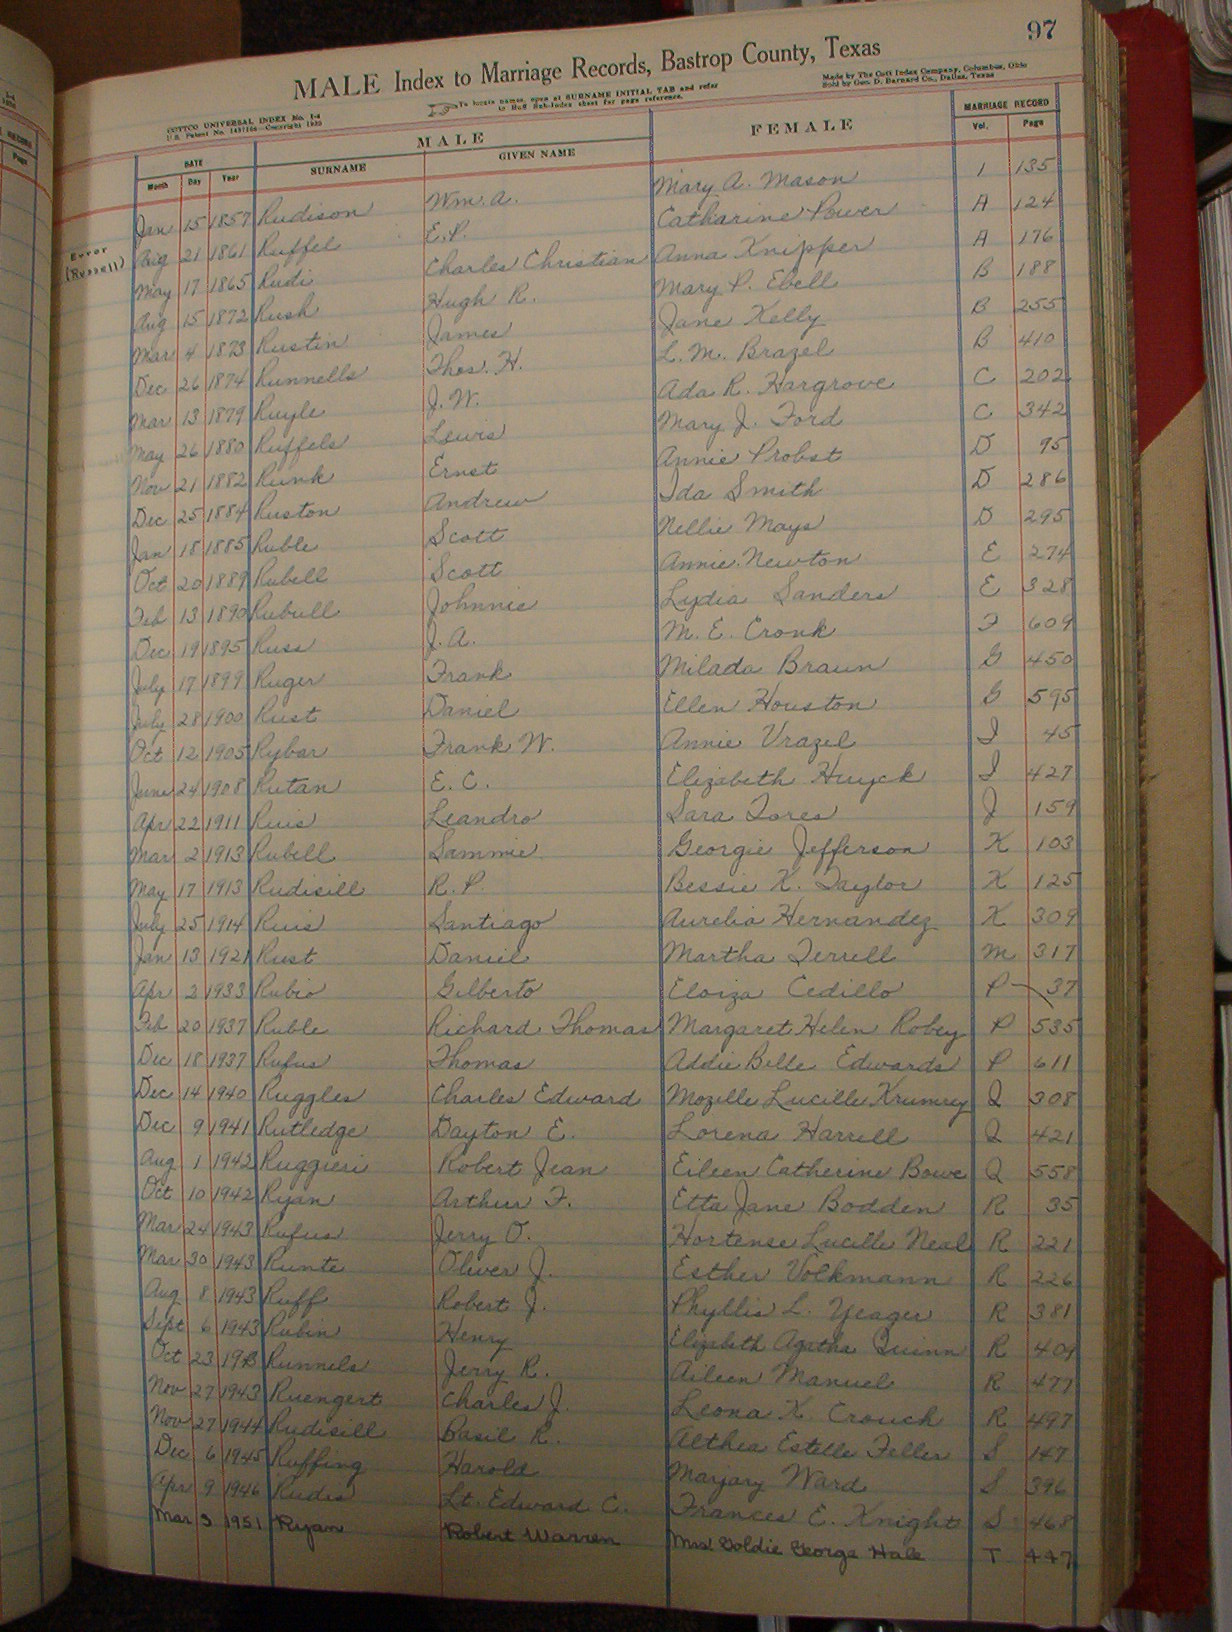 97
MALE Index to Marriage Records, Bastrop County, Texas
To locate names, open at SURNAME INITIAL TAB and refer to Buff Sub-Index sheet for page reference.
Made by The Cott Index Company, Columbus, Ohio
Sold by Geo. D. Barnard Co., Dallas, Texas
COTTCO UNIVERSAL INDEX No. I-4
U.S. Patent No. Copyright
MALE FEMALE MARRIAGE RECORD
DATE SURNAME GIVEN NAME Vol. Page
Month Day Year
Jan 15 1857 Rudison Wm. A. Mary A. Mason 1 135
Error (Russell) Aug 21 1861 Ruffel E.P. Catharine Power A 124
May 17 1865 Rudi Charles Christian Anna Knipper A 176
Aug 15 1872 Rush Hugh R. Mary P. Ebell B 188
Mar 4 1873 Rustin James Jane Kelly B 255
Dec 26 1874 Runnells Thos. H. L. M. Brazel B 410
Mar 13 1879 Ruyle J. W. Ada R. Hargrove C 202
May 26 1880 Ruffels Lewis Mary J. Ford C 342
Nov 21 1882 Runk Ernst Annie Probst D 95
Dec 25 1884 Ruston Andrew Ida Smith D 286
Jan 18 1885 Ruble Scott Nellie Mays D 295
Oct 20 1889 Rubell Scott Annie Newton E 274
Feb 13 1890 Rubull Johnnie Lydia Sanders E 328
Dec 19 1895 Russ J. A. M. E. Cronk F 609
July 17 1899 Ruger Frank Milada Braun G 450
July 28 1900 Rust Daniel Ellen Houston G 595
Oct 12 1905 Rybar Frank W. Annie Vrazel I 45
June 24 1908 Rutan E. C. Elizabeth Huyck I 427
Apr 22 1911 Ruis Leandro Sara Tores J 159
Mar 2 1913 Rubell Sammie Georgie Jefferson K 103
May 17 1913 Rudisill R. P. Bessie K. Taylor K 125
July 25 1914 Ruis Santiago Aurelia Hernandez K 309
Jan 13 1921 Rust Daniel Martha Terrell M 317
Apr 2 1933 Rubio Gilberto Eloiza Cedillo P 37
Feb 20 1937 Ruble Richard Thomas Margaret Helen Robey P 535
Dec 18 1937 Rufus Thomas Addie Belle Edwards P 611
Dec 14 1940 Ruggles Charles Edward Mozelle Lucille Krumrey Q 308
Dec 9 1941 Rutledge Dayton E. Lorena Harrell Q 421
Aug 1 1942 Ruggieri Robert Jean Eileen Catherine Bowe Q 558
Oct 10 1942 Ryan Arthur F. Etta Jane Bodden R 35
Mar 24 1943 Rufus Jerry O. Hortense Lucille Neal R 221
Mar 30 1943 Runte Oliver J. Esther Volkmann R 226
Aug 8 1943 Ruff Robert J. Phyllis L. Yeager R 381
Sept 6 1943 Rubin Henry Elizabeth Agatha Quinn R 409
Oct 23 1943 Runnels Jerry R. Aileen Manuel R 477
Nov 27 1943 Ruengert Charles J. Leona K. Crouch R 497
Nov 27 1944 Rudisill Basil R. Althea Estelle Feller S 147
Dec 6 1945 Ruffing Harold Marjary Ward S 396
Apr 9 1946 Rudis Lt. Edward C. Frances E. Knight S 468
Mar 3 1951 Ryan Robert Warren Mrs Goldie George Hale T 447